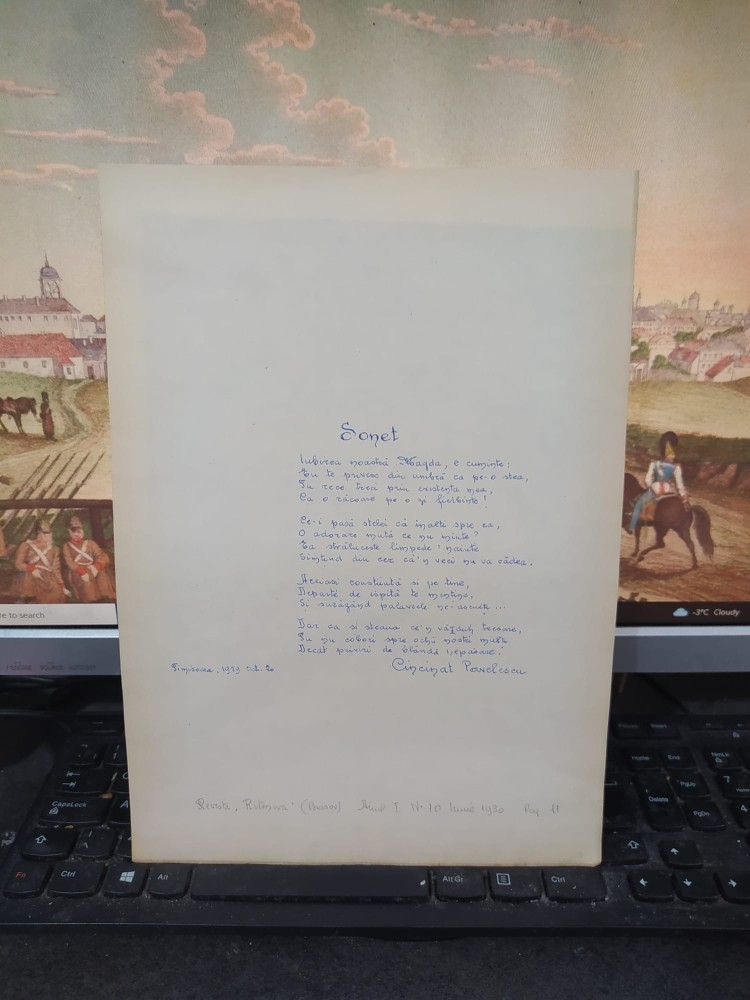 Sonet
Iubirea noastră Magda, e cuminte:
Eu te privesc din umbră ca pe-o stea,
Tu rece treci prin existența mea,
Ca o răcoare pe o zi fierbinte!
Ce-i pasă stelei că înalți spre ea,
O adorare mută ce nu minte?
Ea strălucește limpede 'nainte
Simțind din cer că'n veci nu va cădea,
Aceiași conștiință și pe tine,
Departe de ispită te menține,
Și surâzând palavrele ne-asculți...
Dar ca și steaua ce'n văzduh tresare,
Tu nu cobori spre ochii noștri mulți
Decât priviri de blândă nepăsare!
Timișoara, 1929 Oct. 20
Cincinat Pavelescu
Revista (Brașov) Anul I No 1930 Pag 11
re to search
-3°C Cloudy
CapsLock
Fn
Ctrl
Alt
Alt Gr
Ctrl
Home
End
PgUp
Delete
PgDn